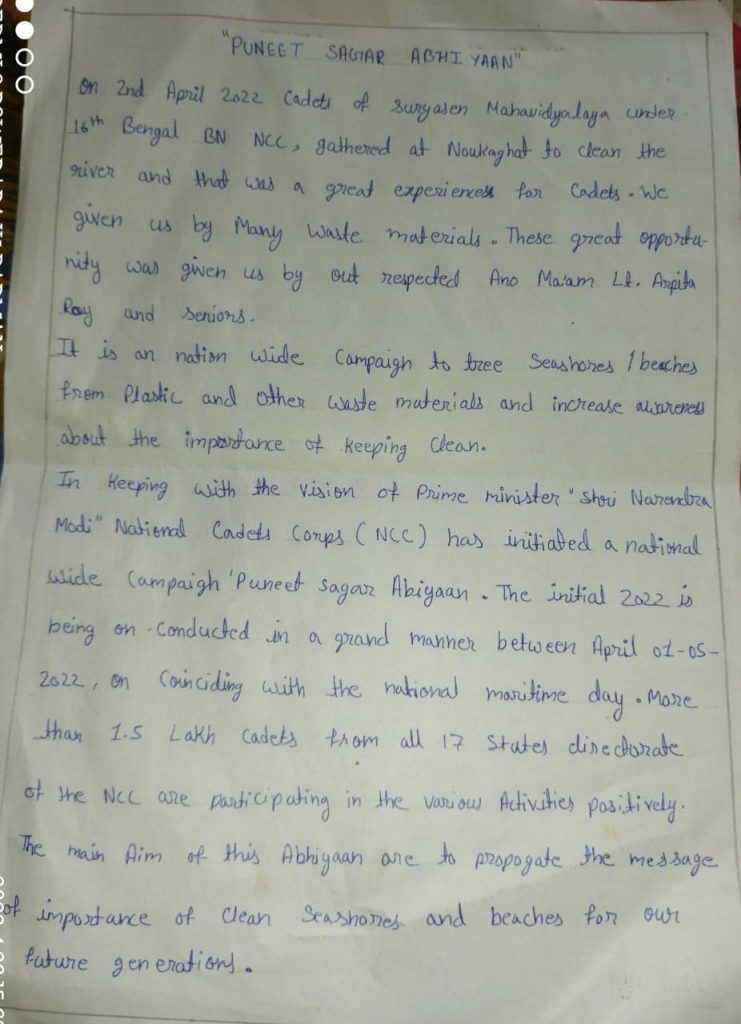 "PUNEET SAGAR ABHIYAAN"
On 2nd April 2022 Cadets of Suryasen Mahavidyalaya under
16th Bengal BN NCC, gathered at Noukaghat to clean the
river and that was a great experiences for Cadets. We
given us by Many waste materials. These great opportu-
nity was given us by out respected Ano Ma'am Lt. Arpita
Roy and seniors.
It is an nation wide Campaign to tree Seashores / beaches
from Plastic and other waste materials and increase awareness
about the importance of keeping Clean.
In keeping with the vision of Prime minister "Shri Narendra
Modi" National Cadets Corps (NCC) has initiated a national
wide Campaigh 'Puneet sagar Abiyaan. The initial 2022 is
being on-conducted in a grand manner between April 01-05-
2022, on Coinciding with the national maritime day. More
than 1.5 Lakh Cadets from all 17 States directorate
of the NCC are participating in the various Activities positively.
The main Aim of this Abhiyaan are to propogate the message
of importance of Clean Seashores and beaches for our
future generations.